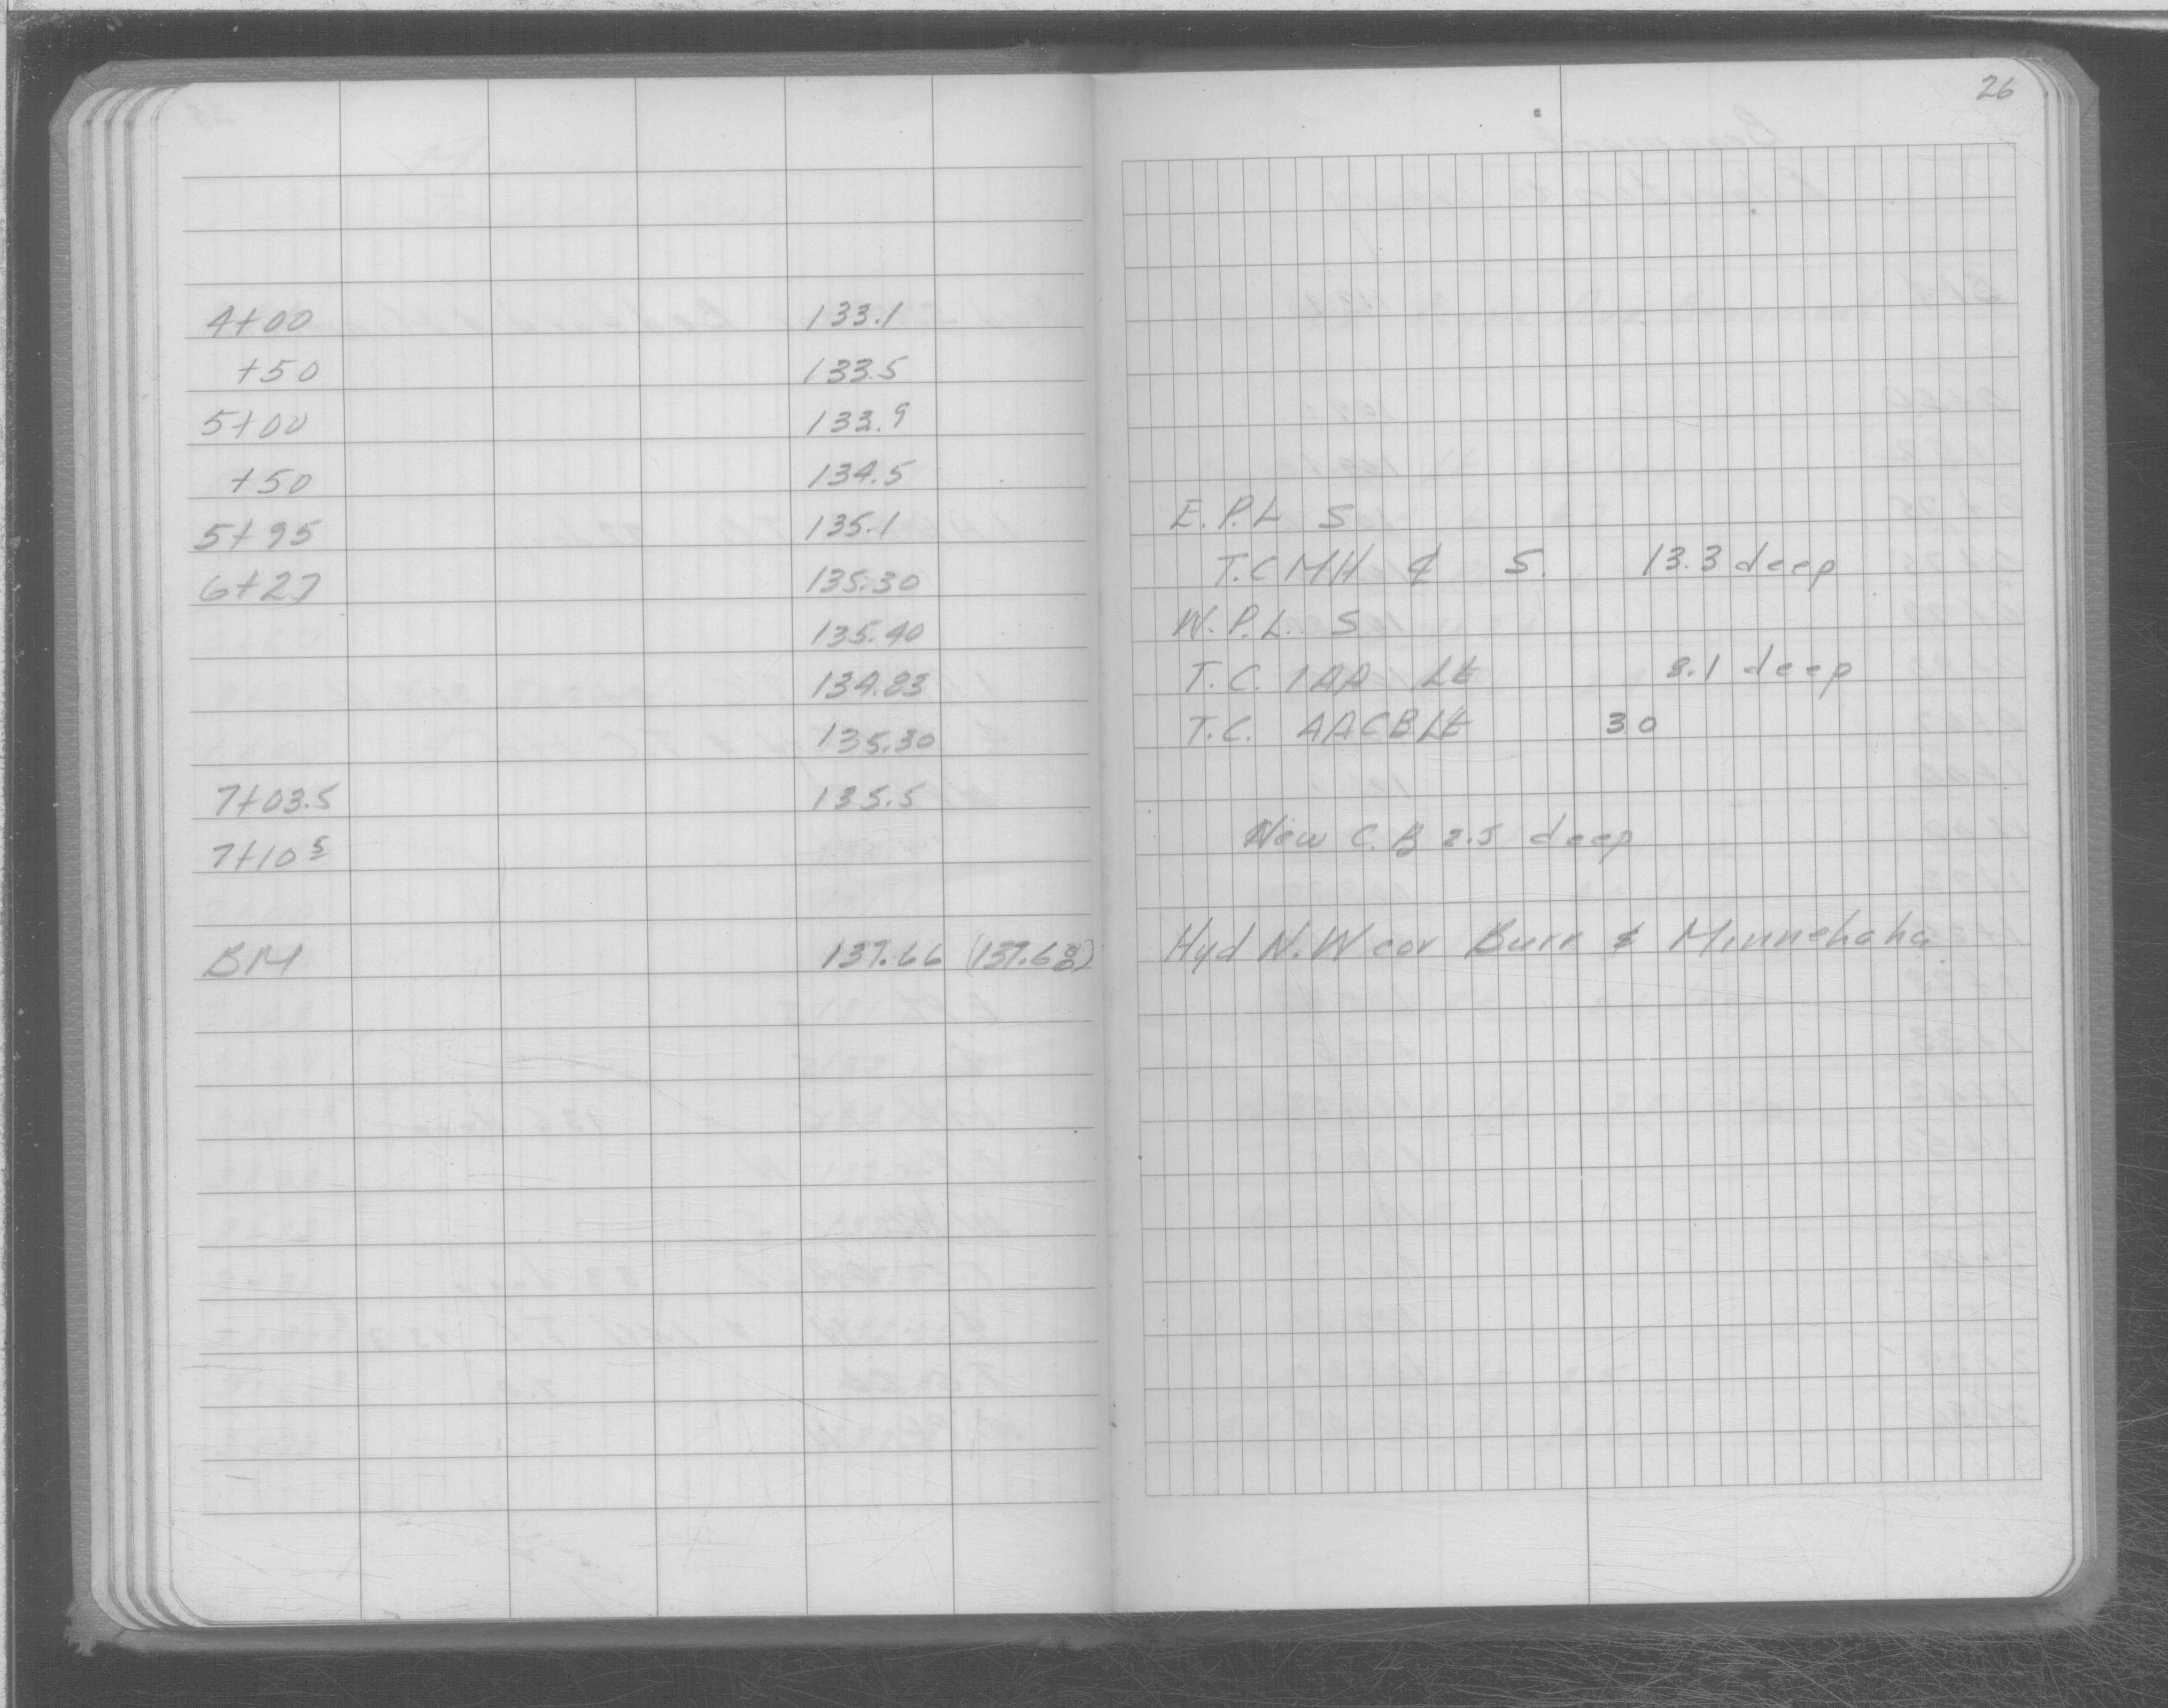 26
4+00 133.1
+50 133.5
5+00 133.9
+50 134.5
5+95 135.1 E.P.L S
6+27 135.30 T.C MH ¢ S. 13.3 deep
135.40 W.P.L. S
134.83 T.C. 1AA Lt 8.1 deep
135.30 T.C. AACB Lt 3.0
7+03.5 135.5
7+10⁵ New C.B 2.5 deep
BM 137.66 Hyd N.W cor Burr & Minnehaha